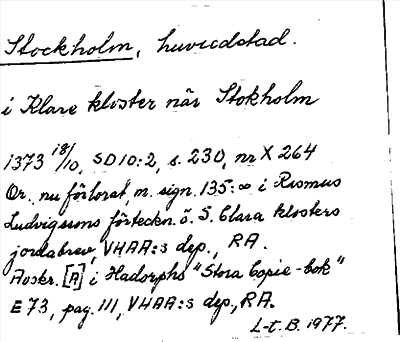 Stockholm, huvudstad.
i Klare kloster när Stokholm
1373 18/10, SD 10:2, s. 230, nr X 264
Or. nu förlorat, m. sign. 135:∞ i Rasmus
Ludvigssons förteckn. ö. S. Clara klosters
jordabrev, VHAA:s dep., RA.
Avskr. [A] i Hadorphs "Stora Copie-bok"
E 73, pag. 111, VHAA:s dep., RA.
L-t. B. 1977.